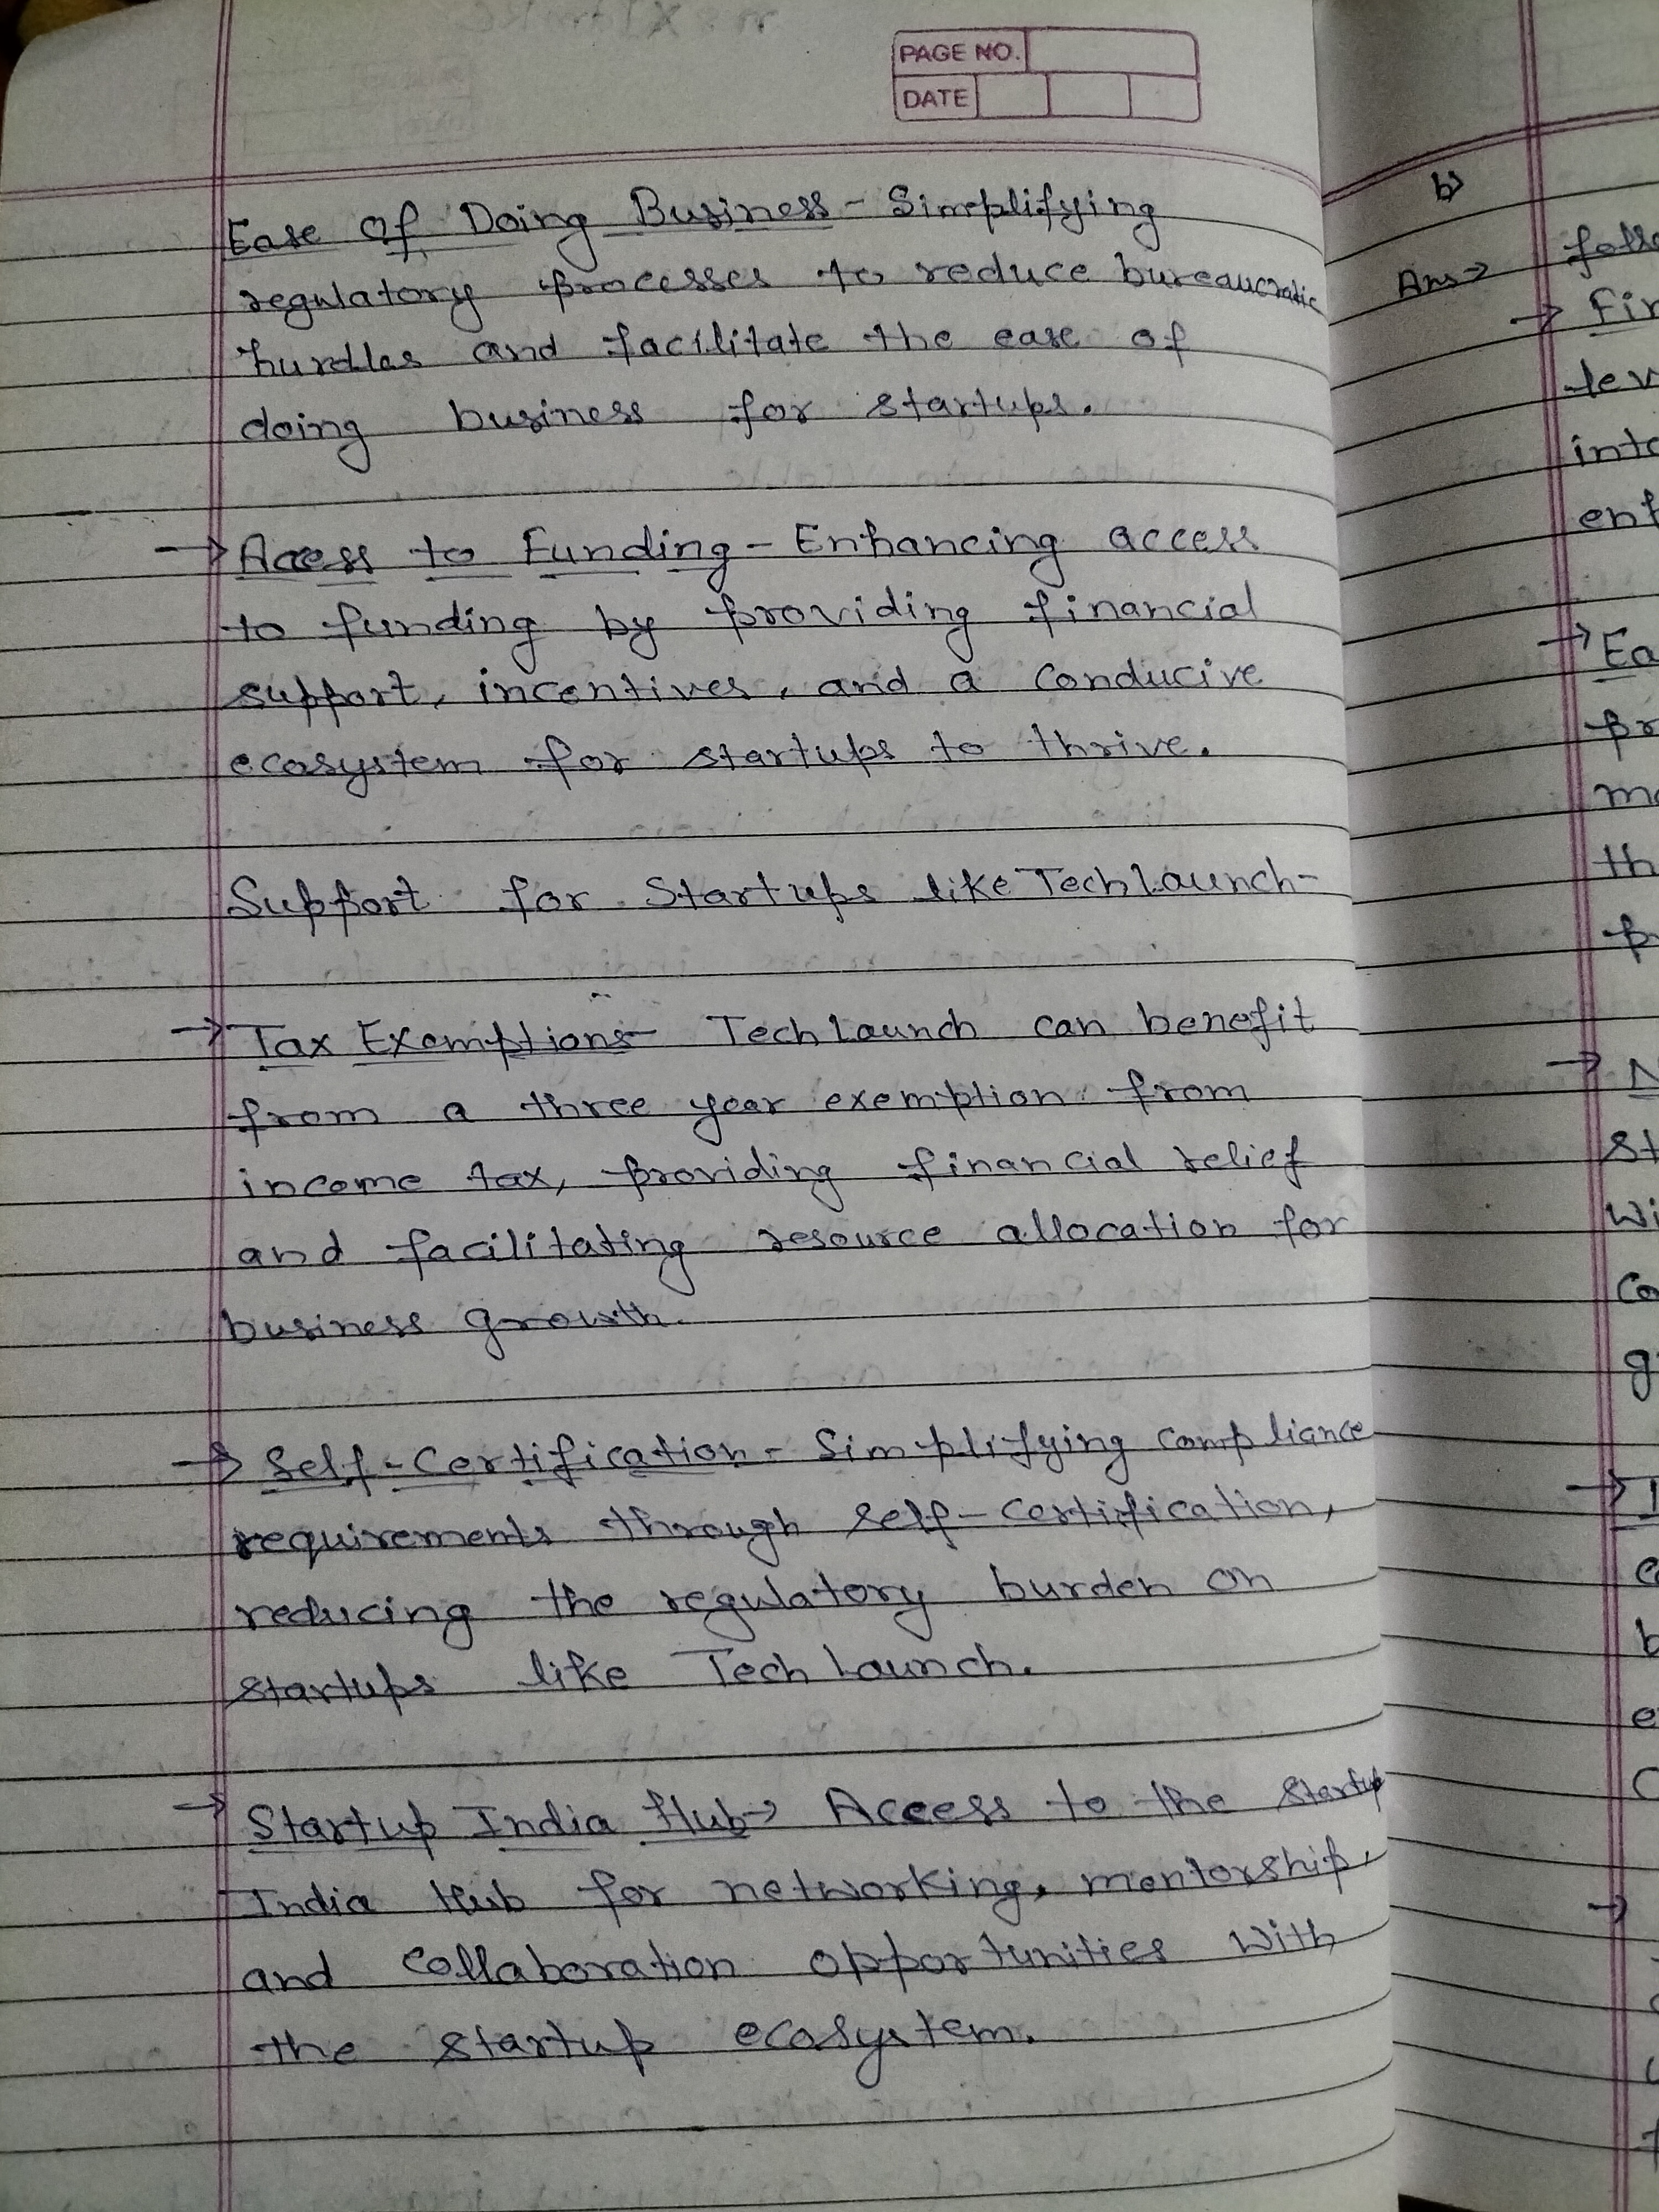 PAGE NO.
DATE
Ease Of Doing Business - Simplifying
regulatory processes to reduce bureaucratic
hurdles and facilitate the ease of
doing business for startups.
→ Access to Funding - Enhancing access
to funding by providing financial
support, incentives, and a conducive
ecosystem for startups to thrive.
Support for Startups like Tech Launch-
→ Tax Exemptions- Tech Launch can benefit
from a three year exemption from
income tax, providing financial relief
and facilitating resource allocation for
business growth.
→ Self-Certification - Simplifying compliance
requirements through self-certification,
reducing the regulatory burden on
startups like Tech Launch.
→ Startup India Hub→ Access to the Startup
India Hub for networking, mentorship,
and collaboration opportunities with
the startup ecosystem.
b)
Ans→
→
→
→
→
→